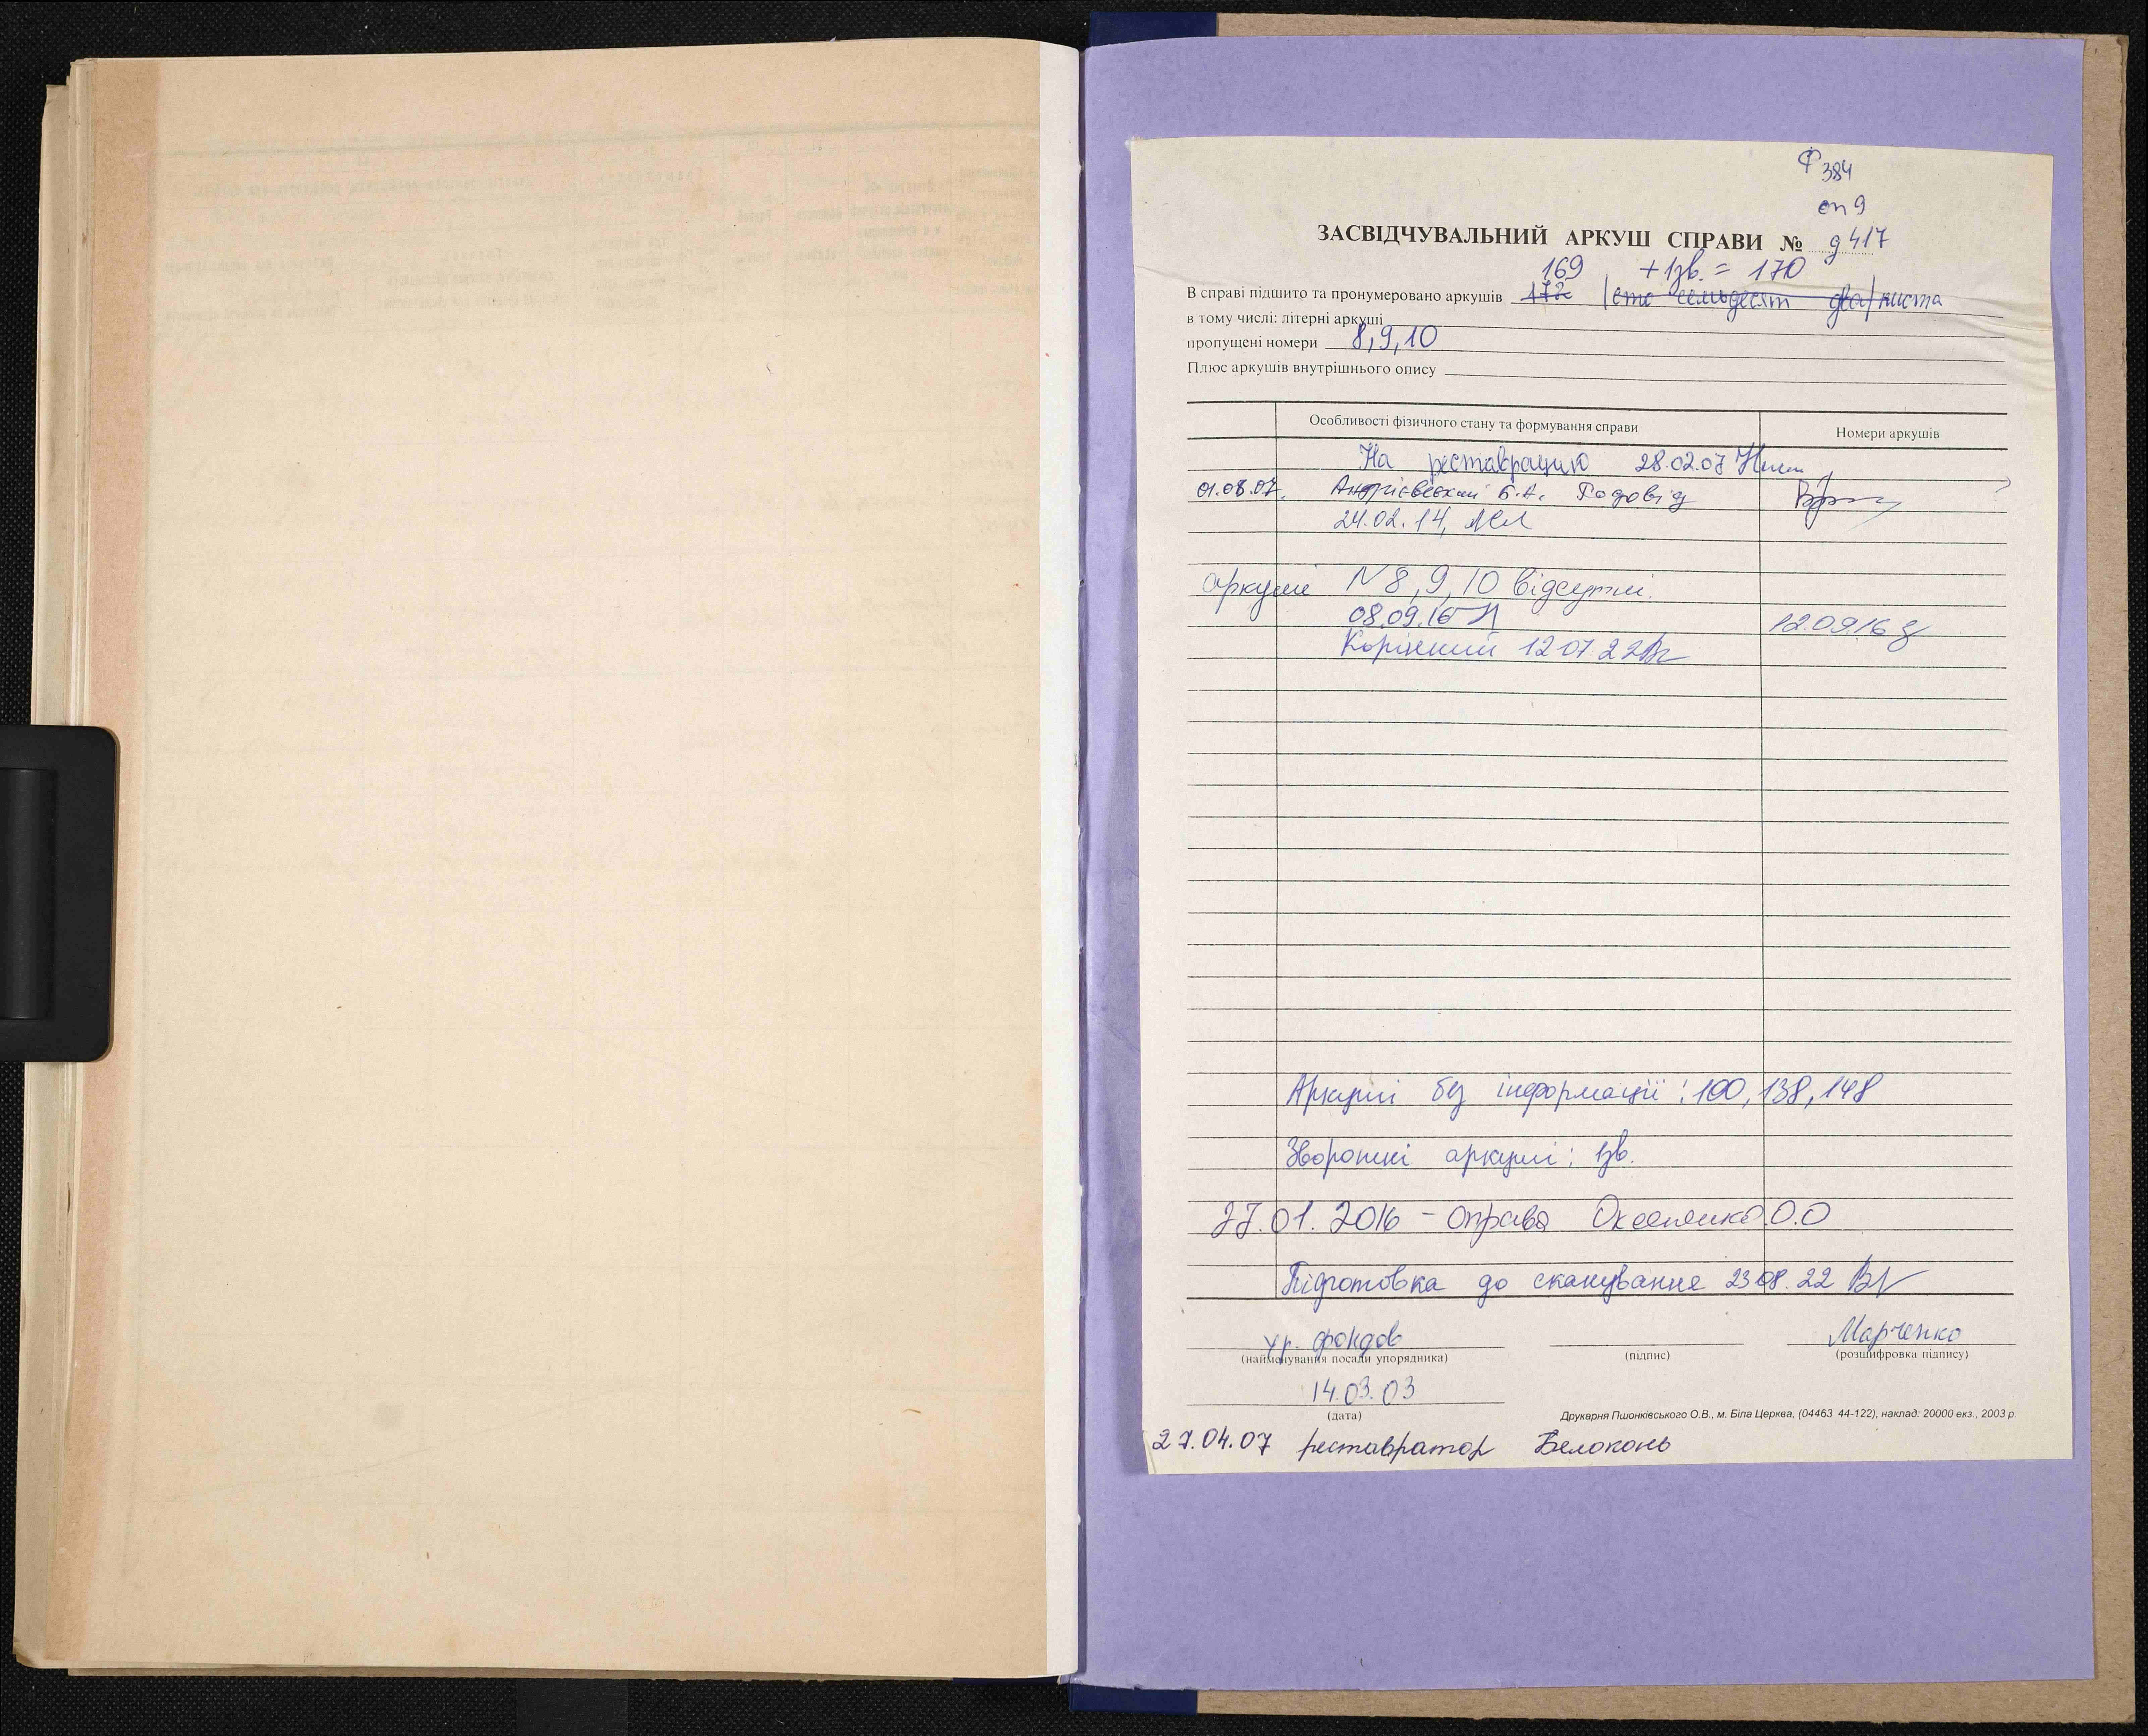 Ф 384
оп 9
ЗАСВІДЧУВАЛЬНИЙ АРКУШ СПРАВИ № д 417
169 + 1зв. = 170
В справі підшито та пронумеровано аркушів 172 (сто семьдесят два) листа
в тому числі: літерні аркуші
пропущені номери 8,9,10
Плюс аркушів внутрішнього опису
Особливості фізичного стану та формування справи
Номери аркушів
На реставрацию 28.02.07
01.08.07. Андрієвский Б.А. Родовід
24.02.14,
аркуші N 8, 9, 10 відсутні.
08.09.16
12.09.16
Корінний 12 07 22
Аркуші без інформації: 100, 138, 148
Зворотні аркуші: 1зв.
27.01.2016 - оправа О.О
Підготовка до сканування 23 08. 22
хр. фондов
Марченко
(найменування посади упорядника)
(підпис)
(розшифровка підпису)
14.03.03
(дата)
Друкарня Пшонківського О.В., м. Біла Церква, (04463 44-122), наклад: 20000 екз., 2003 р.
27.04.07 реставратор Белоконь